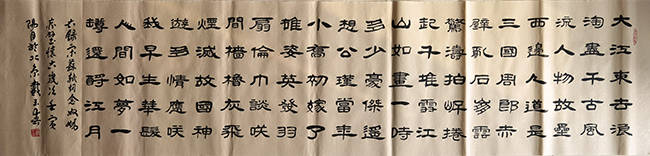 大江東去浪
淘盡千古風
流人物故壘
西邊人道是
三國周郎赤
驚濤拍岸捲
起千堆雪江
山如畫一時
多少豪傑遙
想公瑾當年
小喬初嫁了
雄姿英發羽
扇綸巾談笑
間檣櫓灰飛
煙滅故國神
遊多情應笑
我早生華髮
人間如夢一
樽還酹江月
右錄宋蘇軾詞念奴嬌
赤壁懷古歲次壬寅
陽月於北京